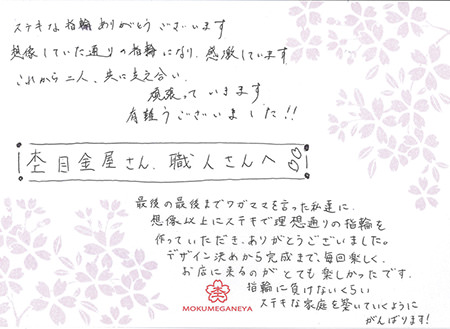 ステキな指輪ありがとうございます
想像していた通りの指輪になり、感激しています
これから二人、共に支え合い
頑張っていきます
有難うございました!!
杢目金屋さん、職人さんへ
最後の最後までワガママを言った私達に
想像以上にステキで理想通りの指輪を
作っていただき、ありがとうございました。
デザイン決めから完成まで、毎回楽しく、
お店に来るのがとても楽しかったです。
指輪に負けないくらい
ステキな家庭を築いていくように
がんばります!
MOKUMEGANEYA